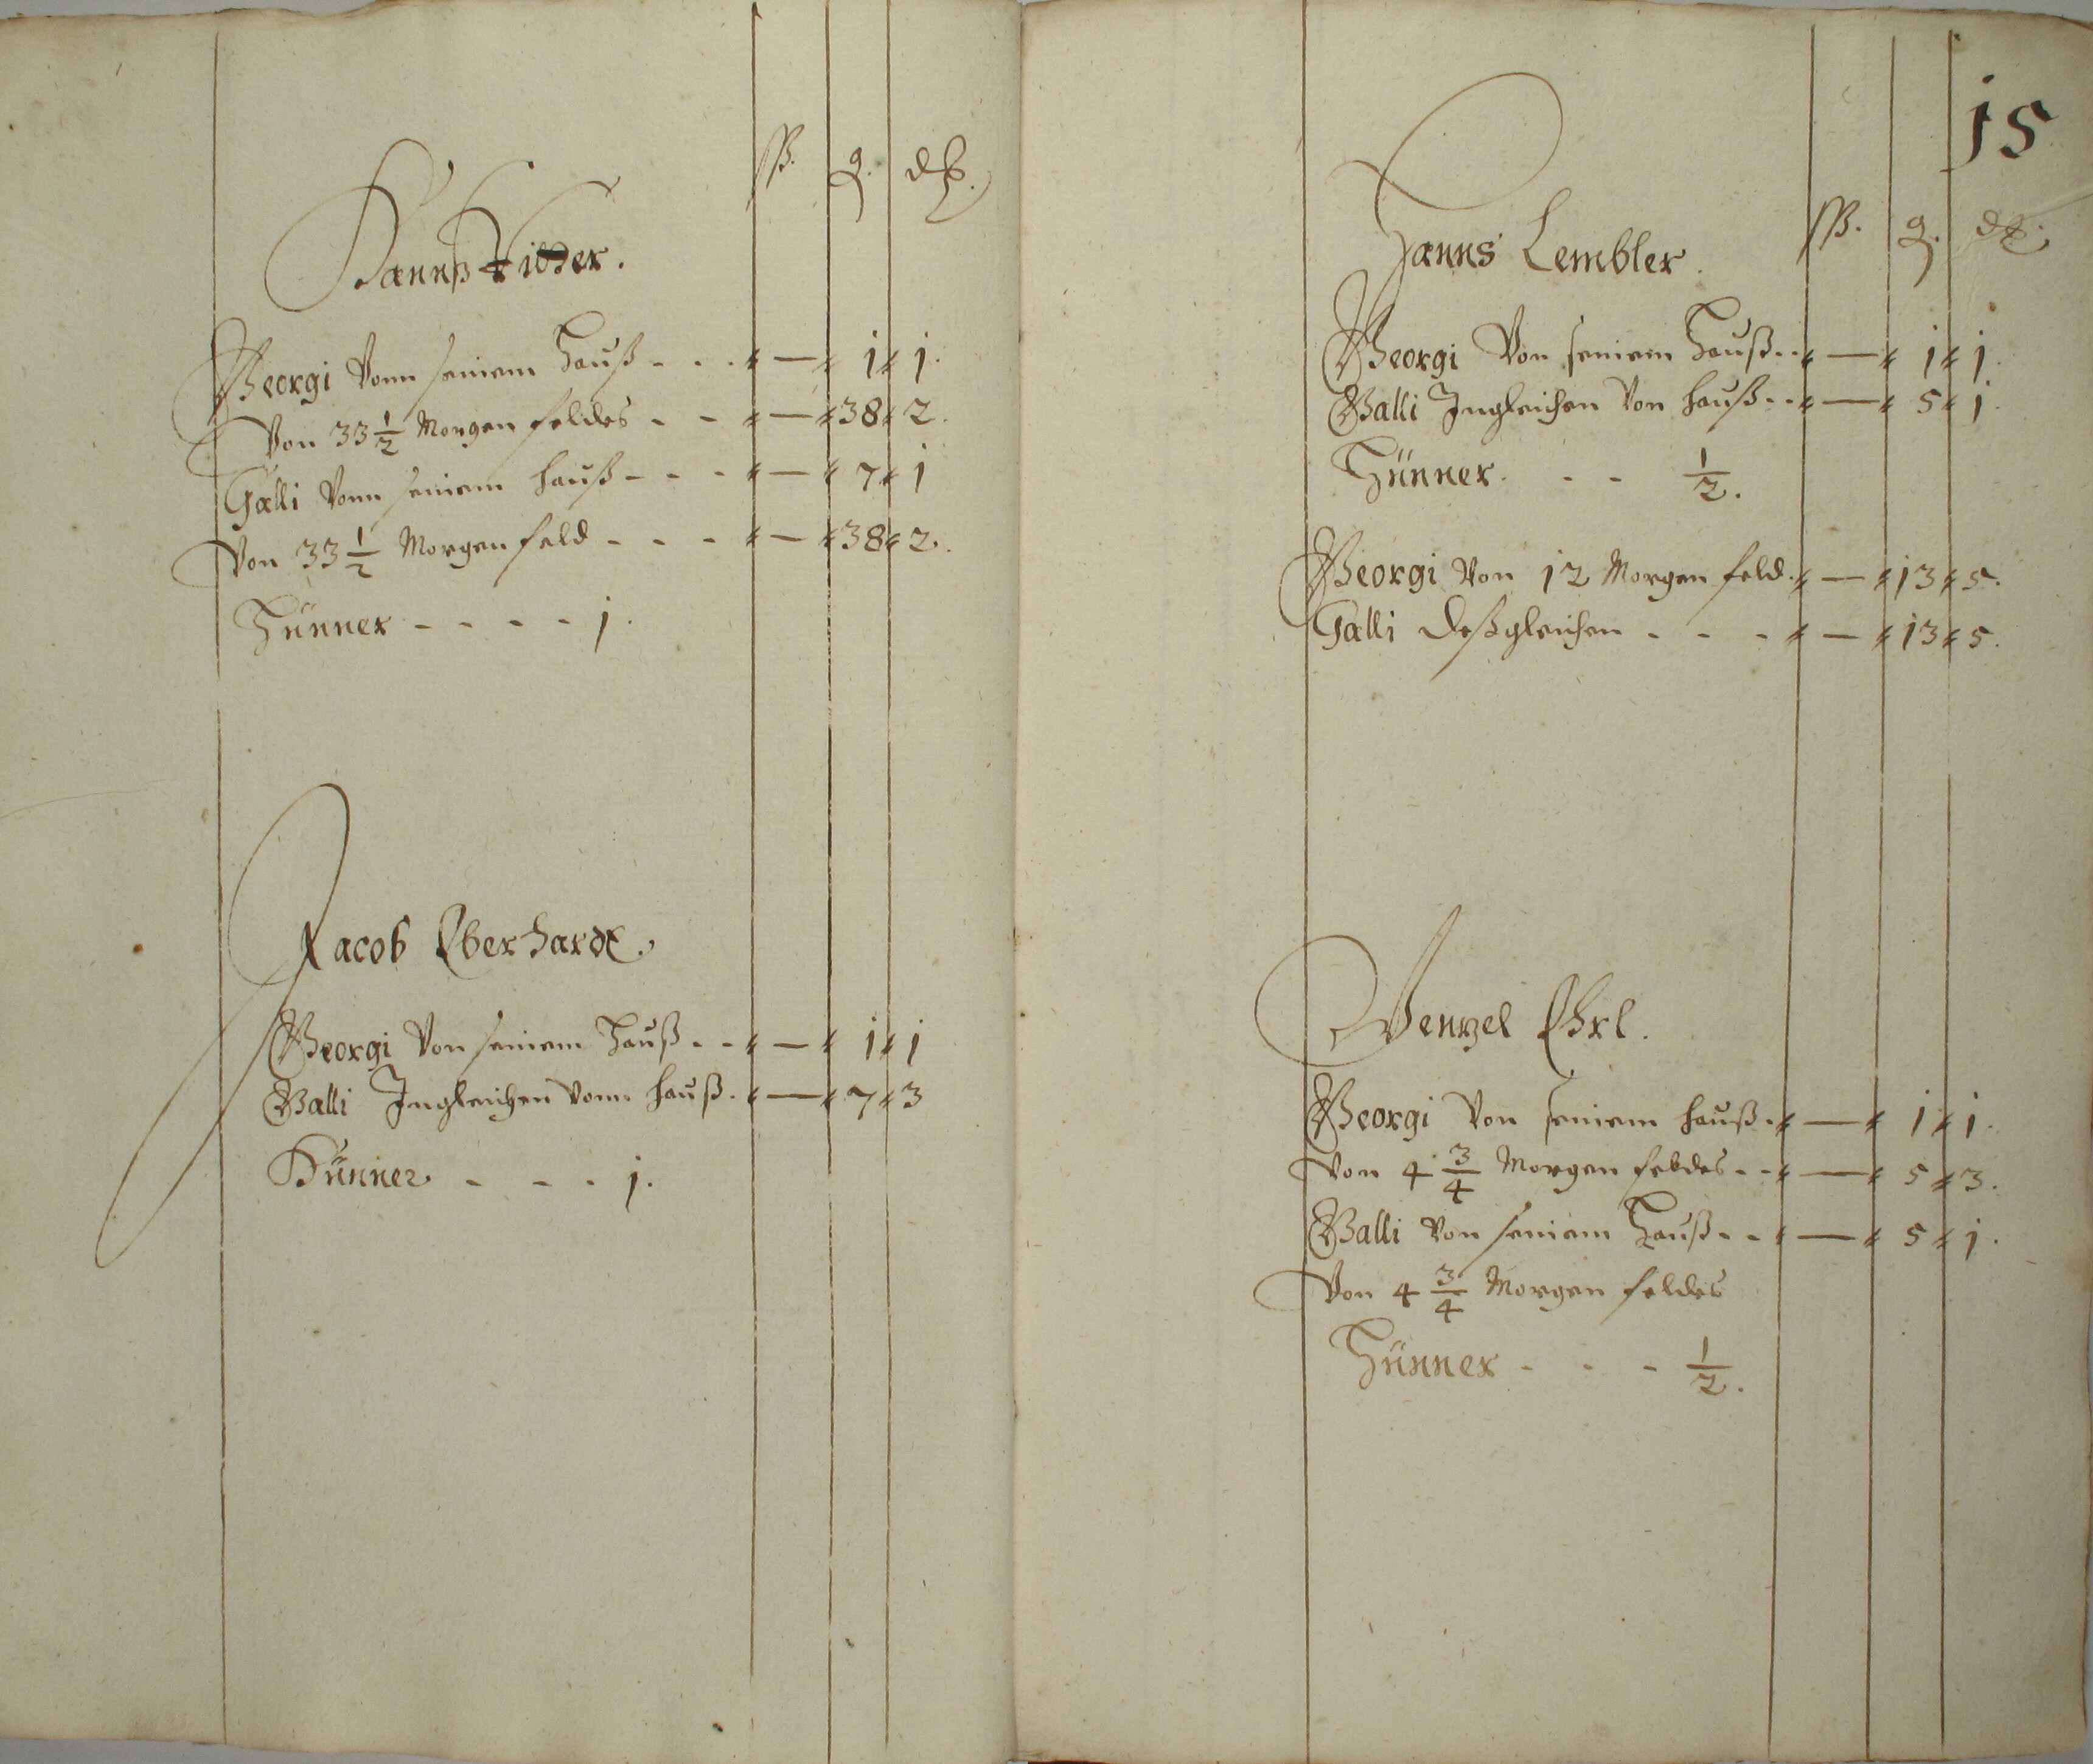 ßß. g. d₰.
Hannß
Georgi Vonn seinem Hauß - - - — 1 1.
Von 33 1/2 Morgen feldes - - — 38 2.
Galli Vonn seinem hauß - - - — 7 1
Von 33 1/2 Morgen feld - - - — 38 2.
Hünner - - - - 1.
Jacob Eberhardt.
Georgi Von seinem Hauß - - — 1 1
Galli Ingleichen Vonn hauß. — 7 3
Hünner - - - 1.
15
ßß. g. d₰.
Hanns Lembler.
Georgi Von seinem Hauß - - — 1 1.
Galli Ingleichen Von hauß - - — 5 1.
Hünner. - - 1/2.
Georgi Von 12 Morgen feld. — 13 5.
Galli Deßgleichen - - - — 13 5.
Wenzel Ehrl.
Georgi Von seinem hauß. — 1 1.
Von 4 3/4 Morgen feldes - - — 5 3.
Galli Von seinem Hauß - - — 5 1.
Von 4 3/4 Morgen feldes
Hünner - - - 1/2.